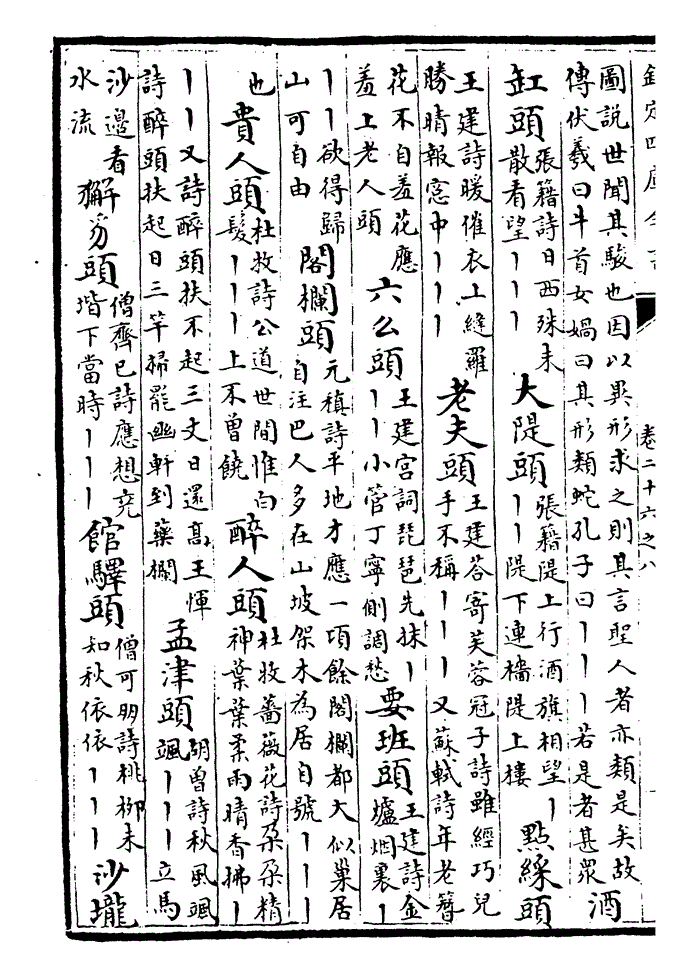 欽定四庫全書
卷二十六之八
圖說世聞其駿也因以異形求之則其言聖人者亦類是矣故
傳伏羲曰牛首女媧曰其形類蛇孔子曰丨丨丨若是者甚眾
酒
缸頭
張籍詩日西殊未
散看望丨丨丨
大隄頭
張籍隄上行酒旗相望丨
丨丨隄下連檣隄上樓
點綵頭
王建詩暖催衣上縫羅
勝晴報窓中丨丨丨
老夫頭
王建荅寄芙蓉冠子詩雖經巧兒
手不稱丨丨丨又蘇軾詩年老簪
花不自羞花應
羞上老人頭
六么頭
王建宮詞琵琶先抹丨
丨丨小管丁寧側調愁
要班頭
王建詩金
爐烟裏丨
丨丨欲得歸
山可自由
閣欄頭
元稹詩平地才應一項餘閣欄都大似巢居
自注巴人多在山坡架木為居自號丨丨丨
也
貴人頭
杜牧詩公道世間惟白
髮丨丨丨上不曾饒
醉人頭
杜牧薔薇花詩朶朶精
神葉葉柔雨晴香拂丨
丨丨又詩醉頭扶不起三丈日還高王惲
詩醉頭扶起日三竿掃罷幽軒到藥欄
孟津頭
胡曾詩秋風颯
颯丨丨丨立馬
沙邊看
水流
獬豸頭
僧齊己詩應想堯
堦下當時丨丨丨
館驛頭
僧可朋詩桃柳未
知秋依依丨丨丨
沙壠